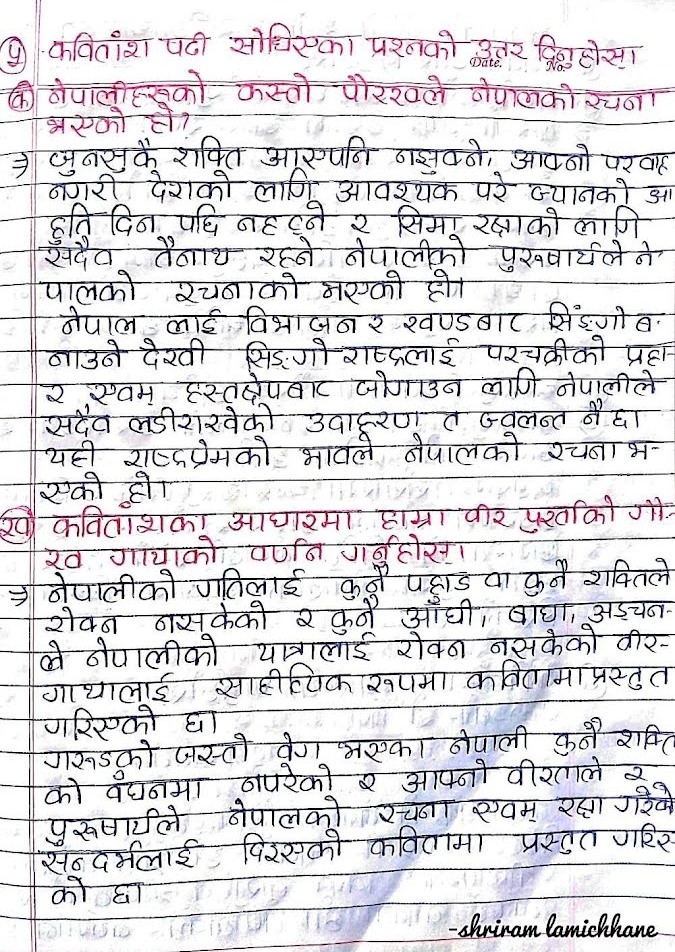 ५ कवितांश पढी सोधिएका प्रश्नको उत्तर दिनुहोस।
Date. No.
क नेपालीहरूको कस्तो पौरखले नेपालको रचना
भएको हो?
⇒ जुनसुकै शक्ति आएपनि नझुक्ने, आफ्नो परवाह
नगरी देशको लागि आवश्यक परे ज्यानको आ
हुति दिन पछि नहट्ने र सिमा रक्षाको लागि
सदैव तैनाथ रहने नेपालीको पुरुषार्थले ने
पालको रचनाको भएको हो।
नेपाल लाई विभाजन र खण्डबाट सिङ्गो ब-
नाउने देखी सिङ्गो राष्ट्रलाई परचक्रीको प्रहा-
र एवम हस्तक्षेपबाट जोगाउन लागि नेपालीले
सदैव लडीराखेको उदाहरण त ज्वलन्त नै छ।
यही राष्ट्रप्रेमको भावले नेपालको रचना भ-
एको हो।
ख कवितांशका आधारमा हाम्रा वीर पुर्खाको गौ-
रव गाथाको वर्णन गर्नुहोस।
⇒ नेपालीको गतिलाई कुनै पहाड वा कुनै शक्तिले
रोक्न नसकेको र कुनै आँधी, बाधा, अड्चन-
ले नेपालीको यात्रालाई रोक्न नसकेको वीर-
गाथालाई साहीत्यिक रूपमा कवितामा प्रस्तुत
गरिएको छ।
गरूडको जस्तो वेग भएका नेपाली कुनै शक्ति
को बंधनमा नपरेको र आफ्नो वीरताले र
पुरूषार्थले नेपालको रचना एवम् रक्षा गरेको
सन्दर्भलाई दिएको कवितामा प्रस्तुत गरिए
को छ।
-shriram lamichhane